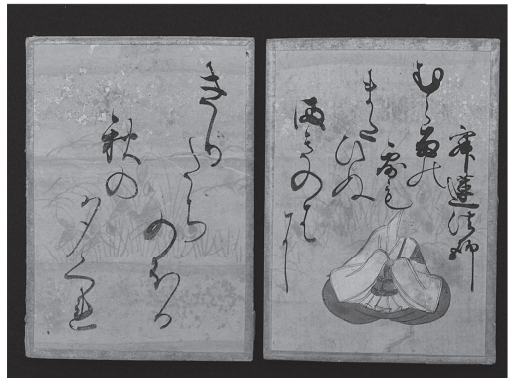 寂蓮法師
むら雨の
露も
また
ひぬ
まきのはに
きり
たち
のほる
秋の
夕くれ